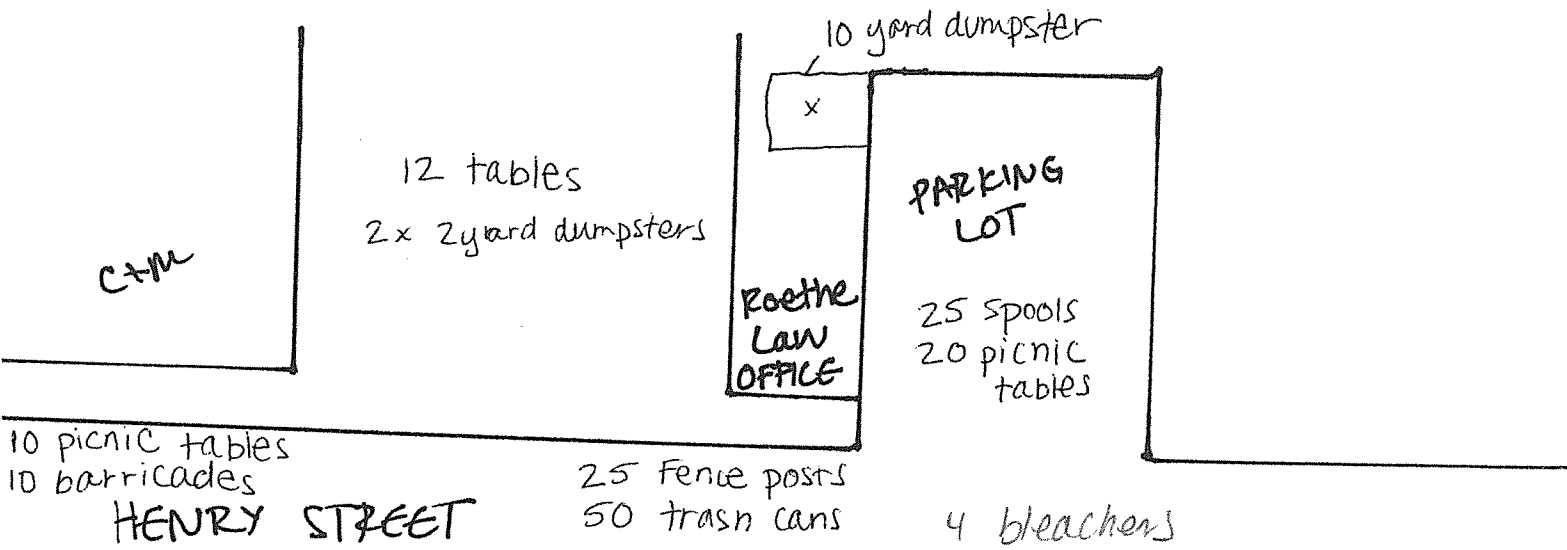 10 yard dumpster
x
12 tables
2x 2yard dumpsters
C+M
PARKING
LOT
Roethe
Law
OFFICE
25 Spools
20 picnic
tables
10 picnic tables
10 barricades
HENRY STREET
25 Fence posts
50 trash cans
4 bleachers